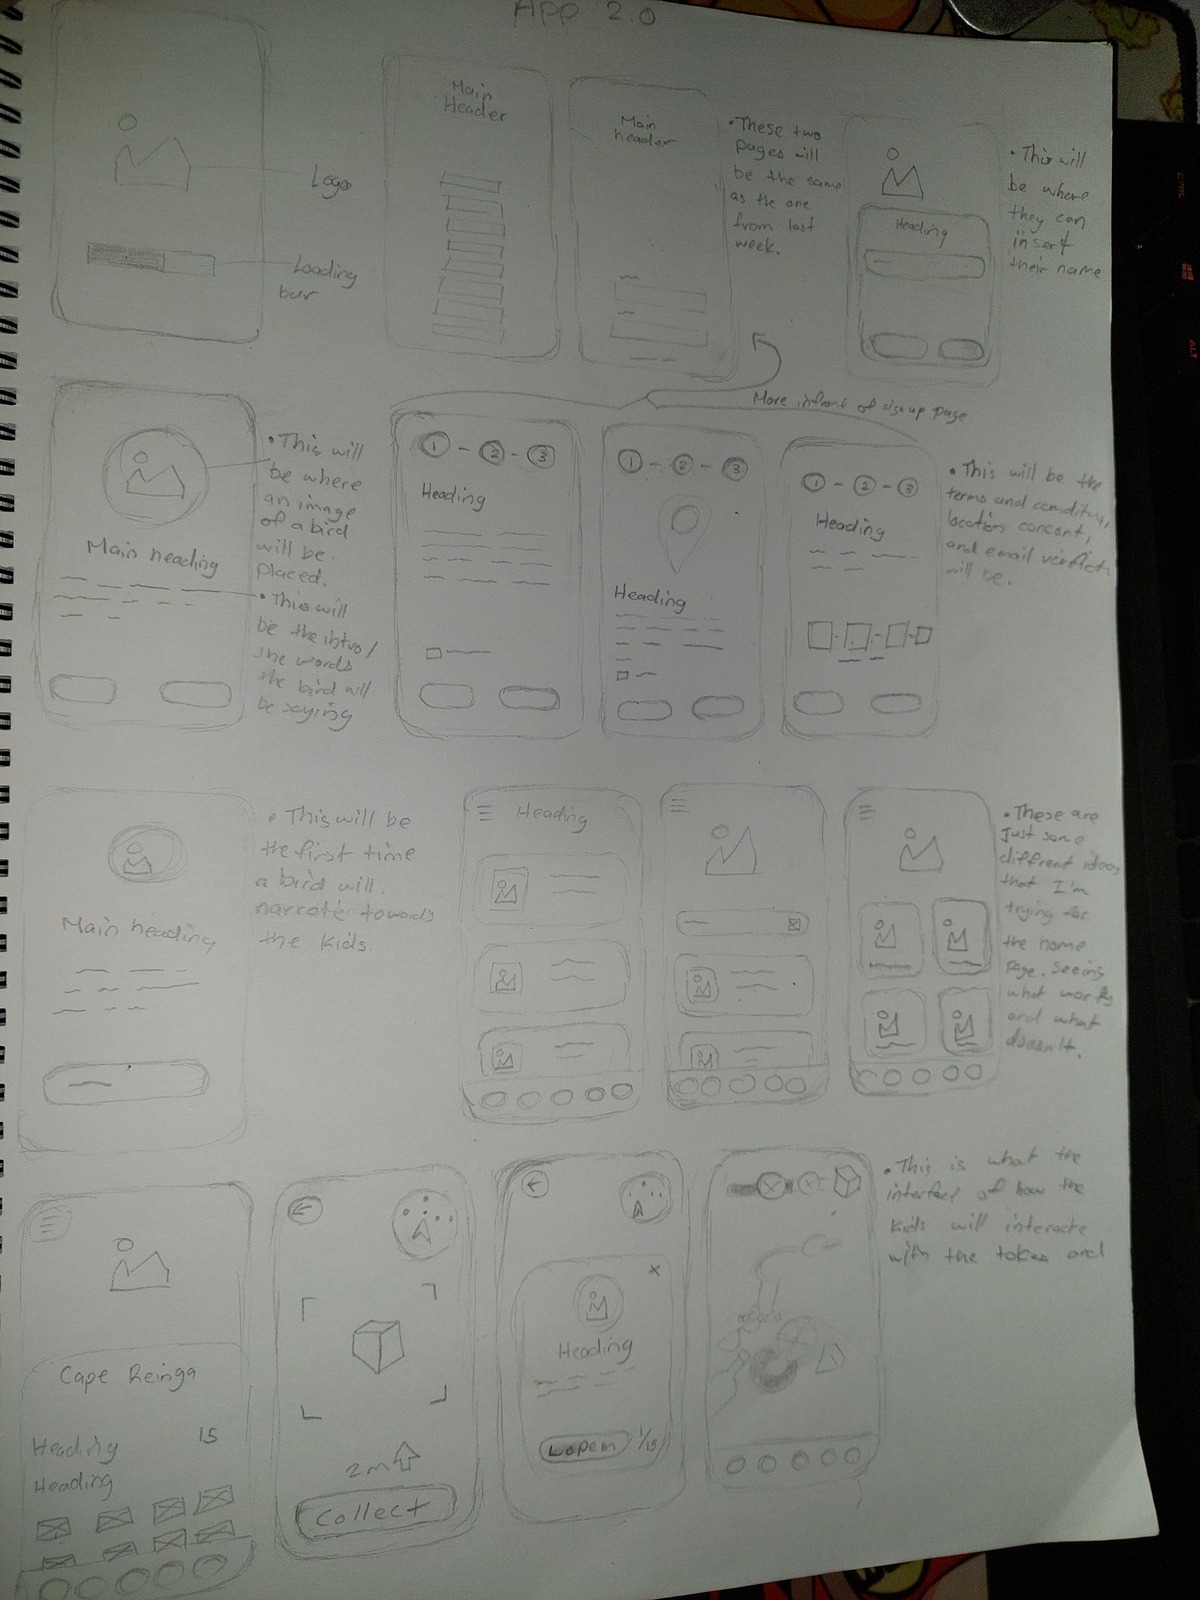 App 2.0
Logo
Loading
bar
Main
Header
Main
header
• These two
pages will
be the same
as the one
from last
week.
Heading
• This will
be where
they can
insert
their name
More infront of sign up page
Main heading
• This will
be where
an image
of a bird
will be
placed.
• This will
be the intro/
the words
the bird will
be saying
1 - 2 - 3
Heading
1 - 2 - 3
Heading
1 - 2 - 3
Heading
• This will be the
terms and
location concent,
and email
will be.
Main heading
• This will be
the first time
a bird will
narrate towards
the kids.
Heading
• These are
Just some
different ideas
that I'm
trying for
the home
page. Seeing
what works
and what
doesn't.
Cape Reinga
Heading 15
Heading
2m
Collect
x
Heading
Lopem 1/15
• This is what the
interface of how the
kids will interacte
with the tokes and